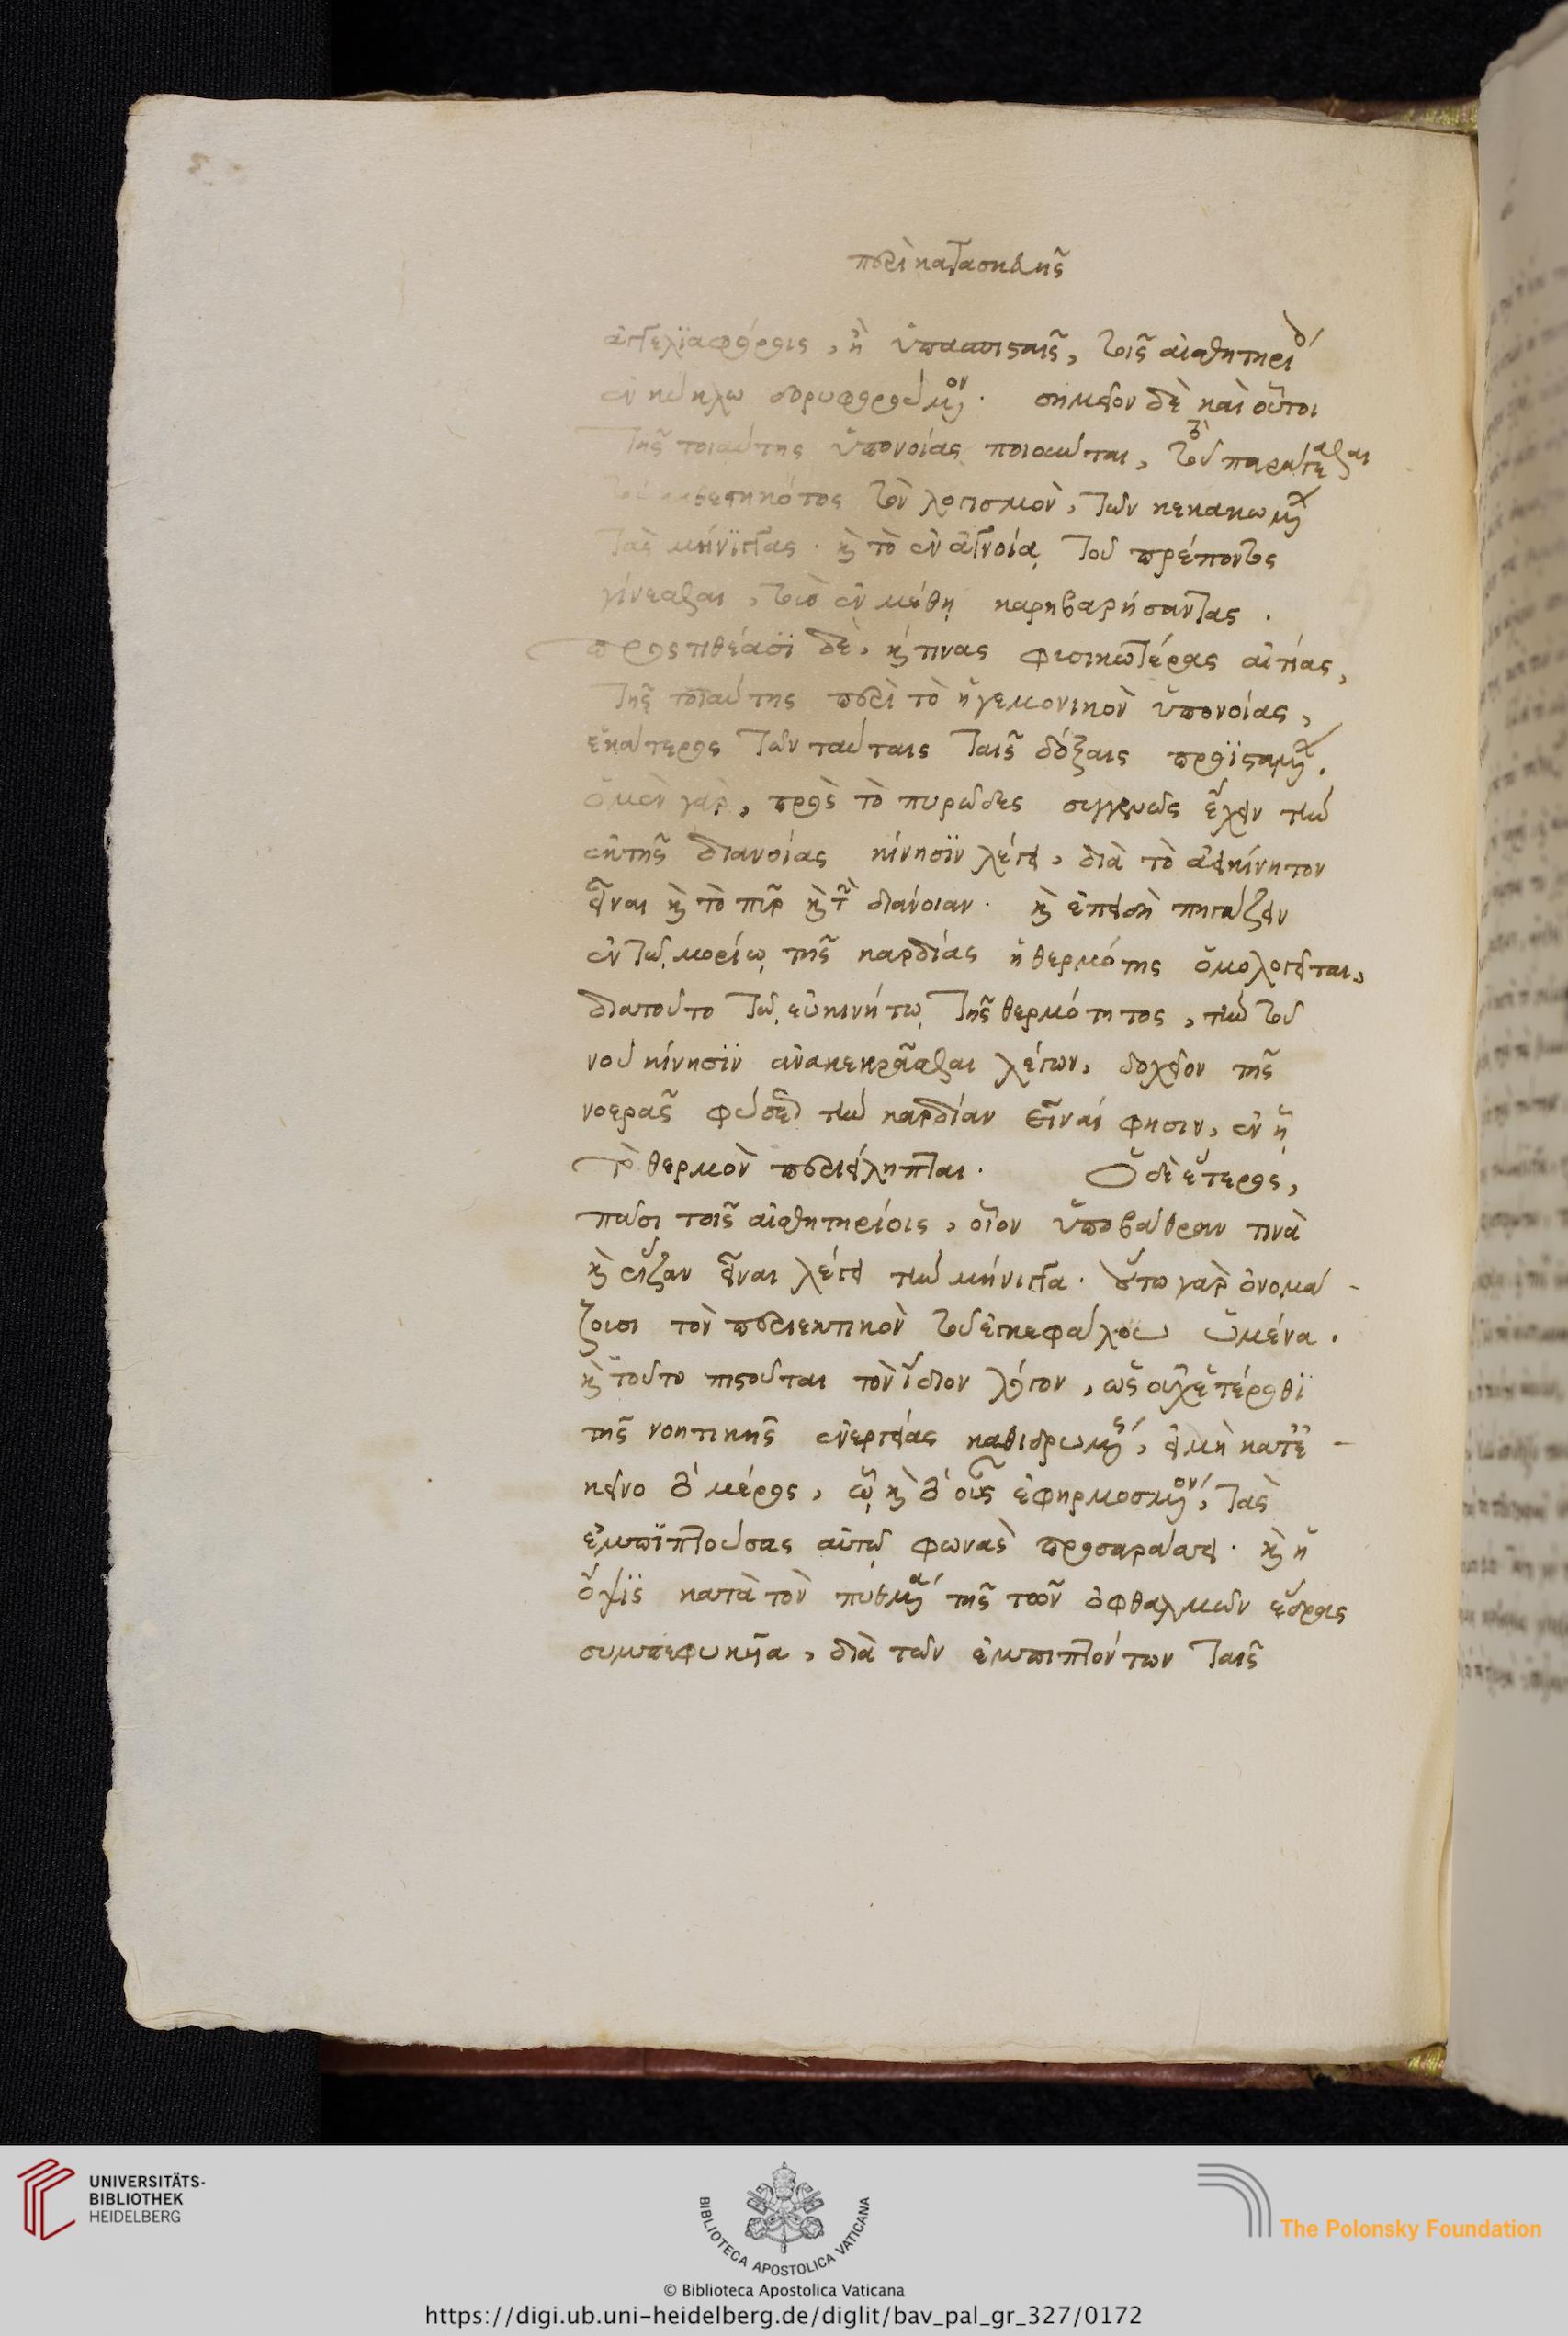 περὶ κατασκευῆς
ἀγγελιαφόροις, ἢ ὑπασπισταῖς, τοῖς αἰσθητηρίοις
ἐν κύκλω δορυφορούμενον. σημεῖον δὲ καὶ οὗτοι
τῆς τοιαύτης ὑπονοίας ποιοῦνται, τὸ παράγεσθαι
τοῦ καθεστηκότος τὸν λογισμὸν, τῶν κεκακωμένων
τὰς μήνιγγας· καὶ τὸ ἐν ἀγνοίᾳ τοῦ πρέποντος
γίνεσθαι, τοὺς ἐν μέθῃ καρηβαρήσαντας.
προστιθέασι δὲ, καί τινας φυσικωτέρας αἰτίας,
τῆς τοιαύτης περὶ τὸ ἡγεμονικὸν ὑπονοίας,
ἑκάτερος τῶν ταύταις ταῖς δόξαις προϊσταμένων.
ὁ μὲν γὰρ, πρὸς τὸ πυρῶδες συγγενῶς ἔχειν τὴν
ἐκ τῆς διανοίας κίνησιν λέγει, διὰ τὸ ἀεικίνητον
εἶναι καὶ τὸ πῦρ καὶ τὴν διάνοιαν· καὶ ἐπειδὴ πηγάζειν
ἐν τῷ μορίῳ τῆς καρδίας ἡ θερμότης ὁμολογεῖται,
διατοῦτο τῷ εὐκινήτῳ τῆς θερμότητος, τὴν τοῦ
νοῦ κίνησιν ἀνακεκρᾶσθαι λέγων, δοχεῖον τῆς
νοερᾶς φύσεως τὴν καρδίαν εἶναί φησιν, ἐν ᾗ
τὸ θερμὸν περιείληπται. Ὁ δὲ ἕτερος,
πᾶσι τοῖς αἰσθητηρίοις, οἷον ὑποβάθραν τινὰ
καὶ ῥίζαν εἶναι λέγει τὴν μήνιγγα. οὕτω γὰρ ὀνομά-
ζουσι τὸν περιεκτικὸν τοῦ ἐγκεφάλου ὑμένα.
καὶ τούτω πιστοῦται τὸν ἴδιον λόγον, ὡς οὐχ ἑτέρωθι
τῆς νοητικῆς ἐνεργείας καθιδρυμένης, εἰ μὴ κατ' ἐ-
κεῖνο τὸ μέρος, ᾧ καὶ τὸ οὖς ἐφηρμοσμένον, τὰς
ἐμπιπτούσας αὐτῷ φωνὰς προσαράσσει. καὶ ἡ
ὄψις κατὰ τὸν πυθμένα τῆς τῶν ὀφθαλμῶν ἕδρας
συμπεφυκυῖα, διὰ τῶν ἐμπιπτόντων ταῖς
UNIVERSITÄTS-
BIBLIOTHEK
HEIDELBERG
BIBLIOTECA APOSTOLICA VATICANA
The Polonsky Foundation
© Biblioteca Apostolica Vaticana
https://digi.ub.uni-heidelberg.de/diglit/bav_pal_gr_327/0172